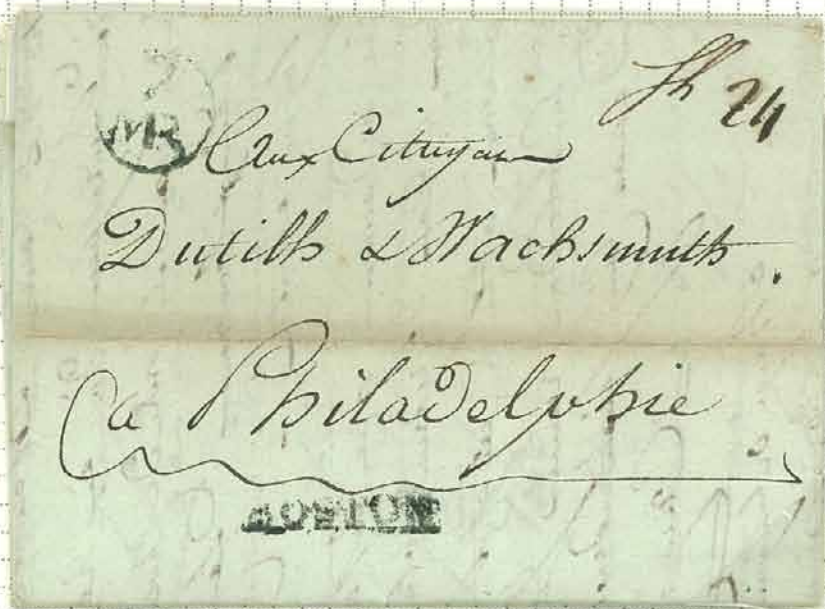 Sh 24
7
MR
Aux Cituyan
Dutilh & Wachsmuth.
a Philadelphie
BOSTON